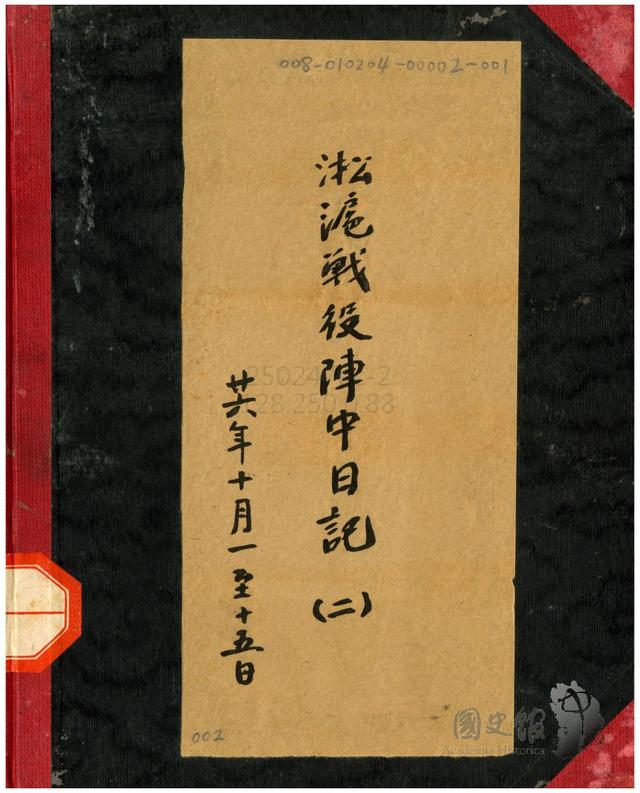 008-010204-00002-001
淞滬戰役陣中日記(二)
廿六年十月一至十五日
002
國史館
Academia Historica